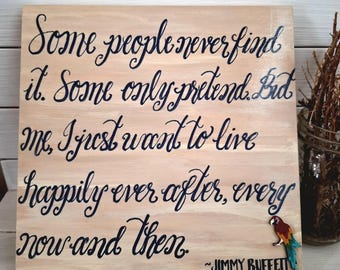 Some people never find
it. Some only pretend. But
me, I just want to live
happily ever after, every
now and then.
~JIMMY BUFFETT